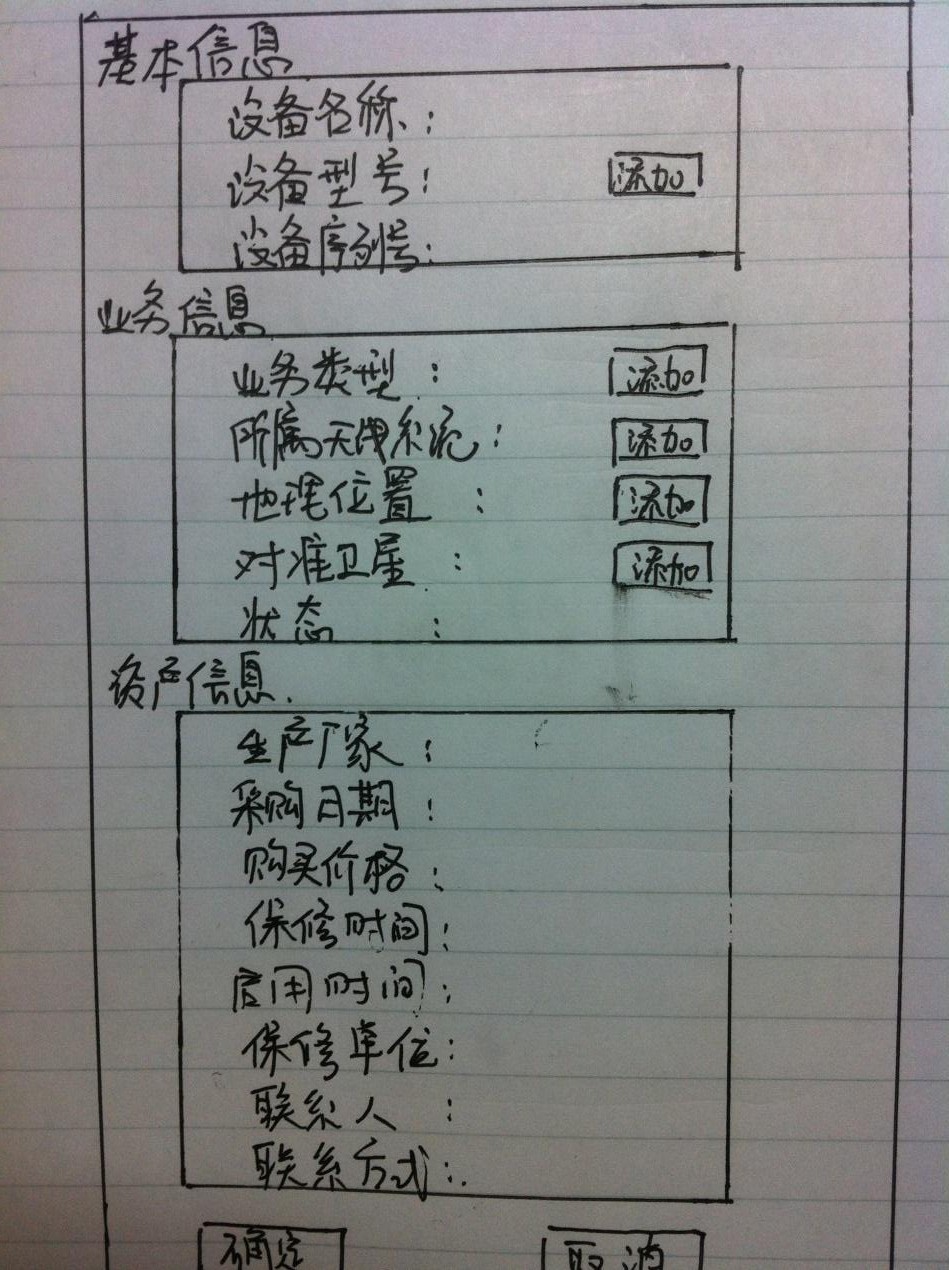 基本信息
设备名称:
设备型号: 添加
设备序列号:
业务信息
业务类型: 添加
所属天线系统: 添加
地理位置: 添加
对准卫星: 添加
状态:
资产信息.
生产厂家:
采购日期:
购买价格:
保修时间:
启用时间:
保修单位:
联系人:
联系方式:
确定 取消